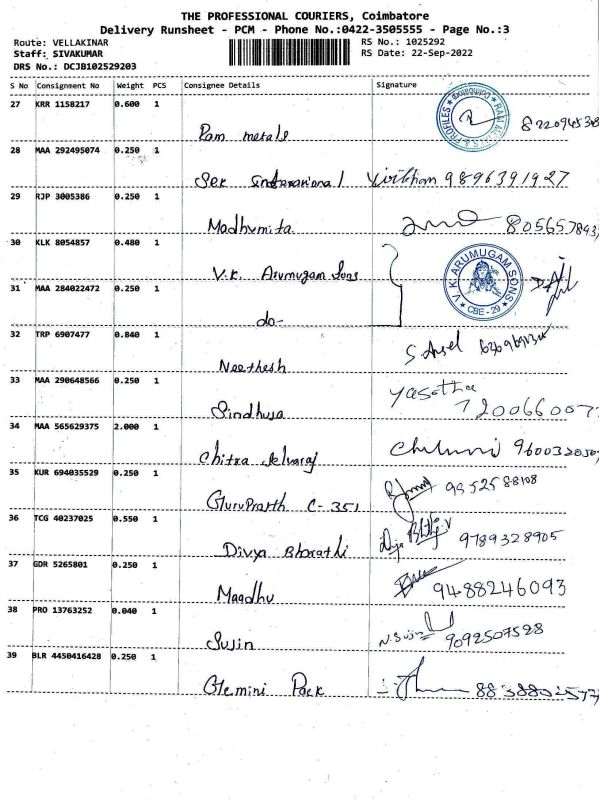 THE PROFESSIONAL COURIERS, Coimbatore
Delivery Runsheet - PCM - Phone No.:0422-3505555 - Page No.:3
Route: VELLAKINAR
RS No.: 1025292
Staff: SIVAKUMAR
RS Date: 22-Sep-2022
DRS No.: DCJB102529203
S No Consignment No Weight PCS Consignee Details Signature
27 KRR 1158217 0.600 1
Ram metals
28 MAA 292495074 0.250 1
9896391927
29 RJP 3005386 0.250 1
Madhumita
30 KLK 8054857 0.480 1
V.K. Arumugam Sons
V.K ARUMUGAM SONS
CBE - 29
31 MAA 284022472 0.250 1
do-
32 TRP 6907477 0.840 1
Neethesh
33 MAA 290648566 0.250 1
Sindhuja
34 MAA 565629375 2.000 1
Chitra Selvaraj
35 KUR 694035529 0.250 1
GuruPrasth C-351 9952588108
36 TCG 40237025 0.550 1
Divya Bharathi 9789328905
37 GDR 5265801 0.250 1
Maadhu 9488246093
38 PRO 13763252 0.040 1
Sujin N.Sujin 9092507528
39 BLR 4450416428 0.250 1
Gemini Pack